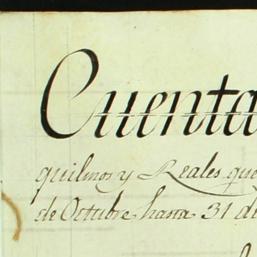 Cuenta
quilmos y Reales que
de Octubre hasta 31 de